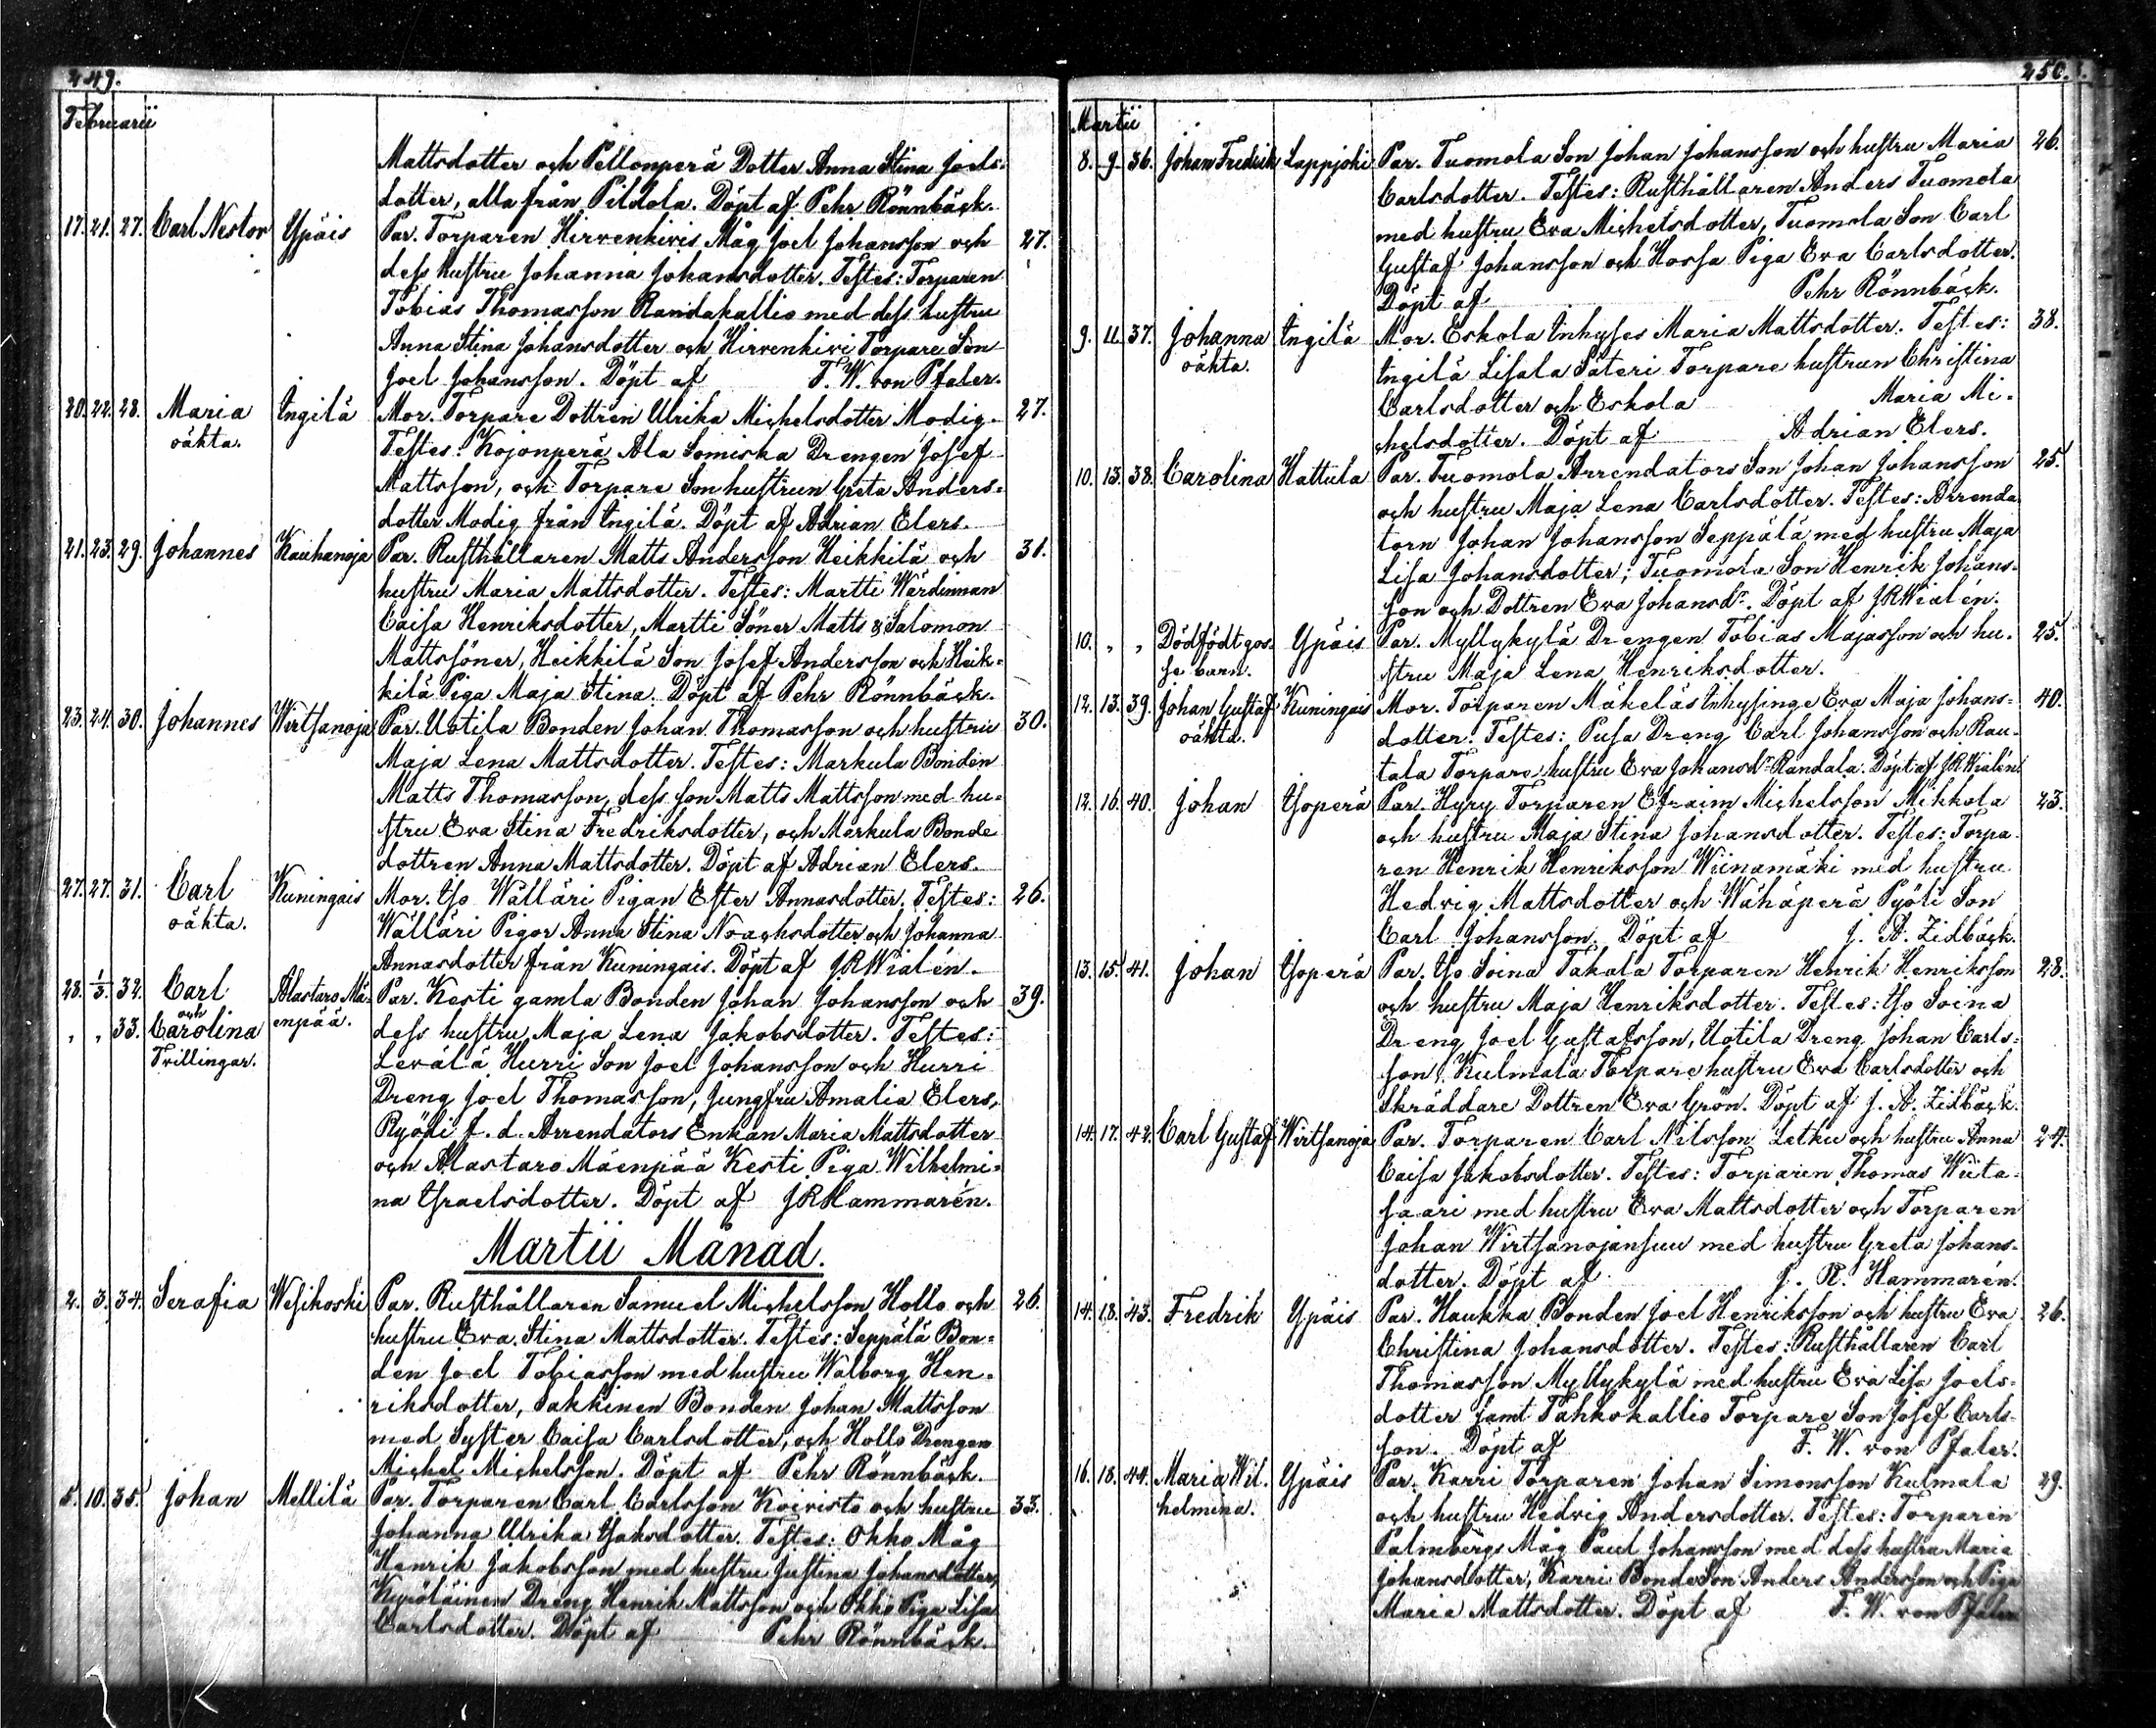 249.
Februarii
Mattsdotter och Pellonperä Dotter Anna Stina Joels-
dotter, alla från Pildola. Döpt af Pehr Rönnbäck.
17. 21. 27. Carl Nestor Ypäis Par. Torparen Hirvenkivis Måg Joel Johansson och 27.
dess hustru Johanna Johansdotter. Testes: Torparen
Tobias Thomasson Randakallio med dess hustru
Anna Stina Johansdotter och Hirvenkivi Torpare Son
Joel Johansson. Döpt af F. W. von Pfaler.
20. 22. 28. Maria Ingilä Mor. Torpare Dottren Ulrika Michelsdotter Modig. 27.
oäkta. Testes: Kojonperä Ala Somiska Drengen Josef
Mattsson, och Torpare Sonhustrun Greta Anders-
dotter Modig från Ingilä. Döpt af Adrian Elers.
21. 23. 29. Johannes Kauhanoja Par. Rusthållaren Matts Andersson Heikkilä och 31.
hustru Maria Mattsdotter. Testes: Martti Wärdinnan
Caisa Henriksdotter, Martti Söner Matts & Salomon
Mattssöner, Heikkilä Son Josef Andersson och Heik-
kilä Piga Maja Stina. Döpt af Pehr Rönnbäck.
23. 24. 30. Johannes Wirtsanoja Par. Uotila Bonden Johan Thomasson och hustru 30.
Maja Lena Mattsdotter. Testes: Markula Bonden
Matts Thomasson, dess son Matts Mattsson med hu-
stru Eva Stina Fredriksdotter, och Markula Bonde
dottren Anna Mattsdotter. Döpt af Adrian Elers.
27. 27. 31. Carl Kuningais Mor. Iso Wälläri Pigan Ester Annasdotter. Testes: 26.
oäkta. Wälläri Pigor Anna Stina Noachsdotter och Johanna
Annasdotter från Kuningais. Döpt af JRWialén.
28. 1/3. 32. Carl Alastaro Mä- Par. Kesti gamla Bonden Johan Johansson och 39.
och
„ „ 33. Carolina enpää. dess hustru Maja Lena Jakobsdotter. Testes:
Trillingar. Levälä Hurri Son Joel Johansson och Hurri
Dreng Joel Thomasson, Jungfru Amalia Elers,
Ryödi f. d. Arrendators Enkan Maria Mattsdotter
och Alastaro Mäenpää Kesti Piga Wilhelmi-
na Israelsdotter. Döpt af JRHammarén.
Martii Månad.
2. 3. 34. Serafia Wesikoski Par. Rusthållaren Samuel Michelsson Hollo och 26.
hustru Eva Stina Mattsdotter. Testes: Seppälä Bon-
den Joel Tobiasson med hustru Walborg Hen-
riksdotter, Sakkinen Bonden Johan Mattsson
med Syster Caisa Carlsdotter, och Hollo Drengen
Michel Michelsson. Döpt af Pehr Rönnbäck.
5. 10. 35. Johan Mellilä Par. Torparen Carl Carlsson Koivisto och hustru 33.
Johanna Ulrika Isaksdotter. Testes: Okko Måg
Henrik Jakobsson med hustru Justina Johansdotter,
Kyröläinen Dreng Henrik Mattsson och Okko Piga Lisa
Carlsdotter. Döpt af Pehr Rönnbäck.
250.
Martii
8. 9. 36. Johan Fredrik Lappjoki Par. Tuomola Son Johan Johansson och hustru Maria 26.
Carlsdotter. Testes: Rusthållaren Anders Tuomola
med hustru Eva Michelsdotter, Tuomola Son Carl
Gustaf Johansson och Hossa Piga Eva Carlsdotter.
Döpt af Pehr Rönnbäck.
9. 11. 37. Johanna Ingilä Mor. Eskola Inhyses Maria Mattsdotter. Testes: 38.
oäkta. Ingilä Lisala Säteri Torpare hustrun Christina
Carlsdotter och Eskola Maria Mi-
chelsdotter. Döpt af Adrian Elers.
10. 13. 38. Carolina Hattula Par. Tuomola Arrendators Son Johan Johansson 25.
och hustru Maja Lena Carlsdotter. Testes: Arrenda-
torn Johan Johansson Seppälä med hustru Maja
Lisa Johansdotter, Tuomola Son Henrik Johans-
son och Dottren Eva Johansdr. Döpt af JRWialén.
10. „ „ Dödfödt gos- Ypäis Par. Myllykylä Drengen Tobias Majasson och hu- 25.
se barn. stru Maja Lena Henriksdotter.
12. 13. 39. Johan Gustaf Kuningais Mor. Torparen Mäkeläs Inhysinge Eva Maja Johans- 40.
oäkta. dotter. Testes: Pusa Dreng Carl Johansson och Rau-
tala Torpare hustru Eva Johansdr Randala. Döpt af JRWialén.
12. 16. 40. Johan Isoperä Par. Hyry Torparen Efraim Michelsson Mikkola 23.
och hustru Maja Stina Johansdotter. Testes: Torpa-
ren Henrik Henriksson Wiinamäki med hustru
Hedvig Mattsdotter och Wähäperä Pyöli Son
Carl Johansson. Döpt af J. A. Zidbäck.
13. 15. 41. Johan Isoperä Par. Iso Soina Takala Torparen Henrik Henriksson 28.
och hustru Maja Henriksdotter. Testes: Iso Soina
Dreng Joel Gustafsson, Uotila Dreng Johan Carls-
son, Kulmala Torpare hustru Eva Carlsdotter och
Skräddare Dottren Eva Grön. Döpt af J. A. Zidbäck.
14. 17. 42. Carl Gustaf Wirtsanoja Par. Torparen Carl Nilsson Letku och hustru Anna 24.
Caisa Jakobsdotter. Testes: Torparen Thomas Wiita-
saari med hustru Eva Mattsdotter och Torparen
Johan Wirtsanojansuu med hustru Greta Johans-
dotter. Döpt af J. R. Hammarén.
14. 18. 43. Fredrik Ypäis Par. Haukka Bonden Joel Henriksson och hustru Eva 26.
Christina Johansdotter. Testes: Rusthållaren Carl
Thomasson Myllykylä med hustru Eva Lisa Joels-
dotter samt Tahkokallio Torpare Son Josef Carls-
son. Döpt af F. W. von Pfaler.
16. 18. 44. Maria Wil- Ypäis Par. Karri Torparen Johan Simonsson Kulmala 29.
helmina. och hustru Hedvig Andersdotter. Testes: Torparen
Palmbergs Måg Paul Johansson med dess hustru Maria
Johansdotter, Karri Bonde Son Anders Andersson och Piga
Maria Mattsdotter. Döpt af F. W. von Pfaler